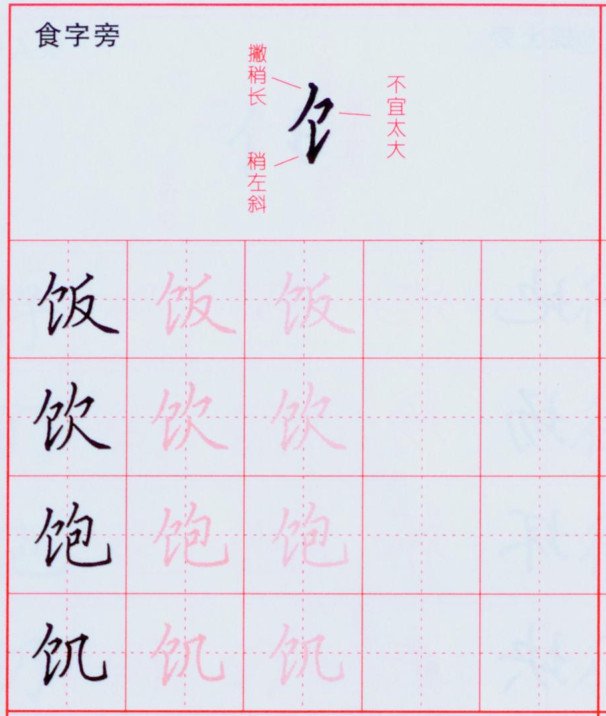 食字旁
撇稍长
饣
不宜太大
稍左斜
饭 饭 饭
饮 饮 饮
饱 饱 饱
饥 饥 饥